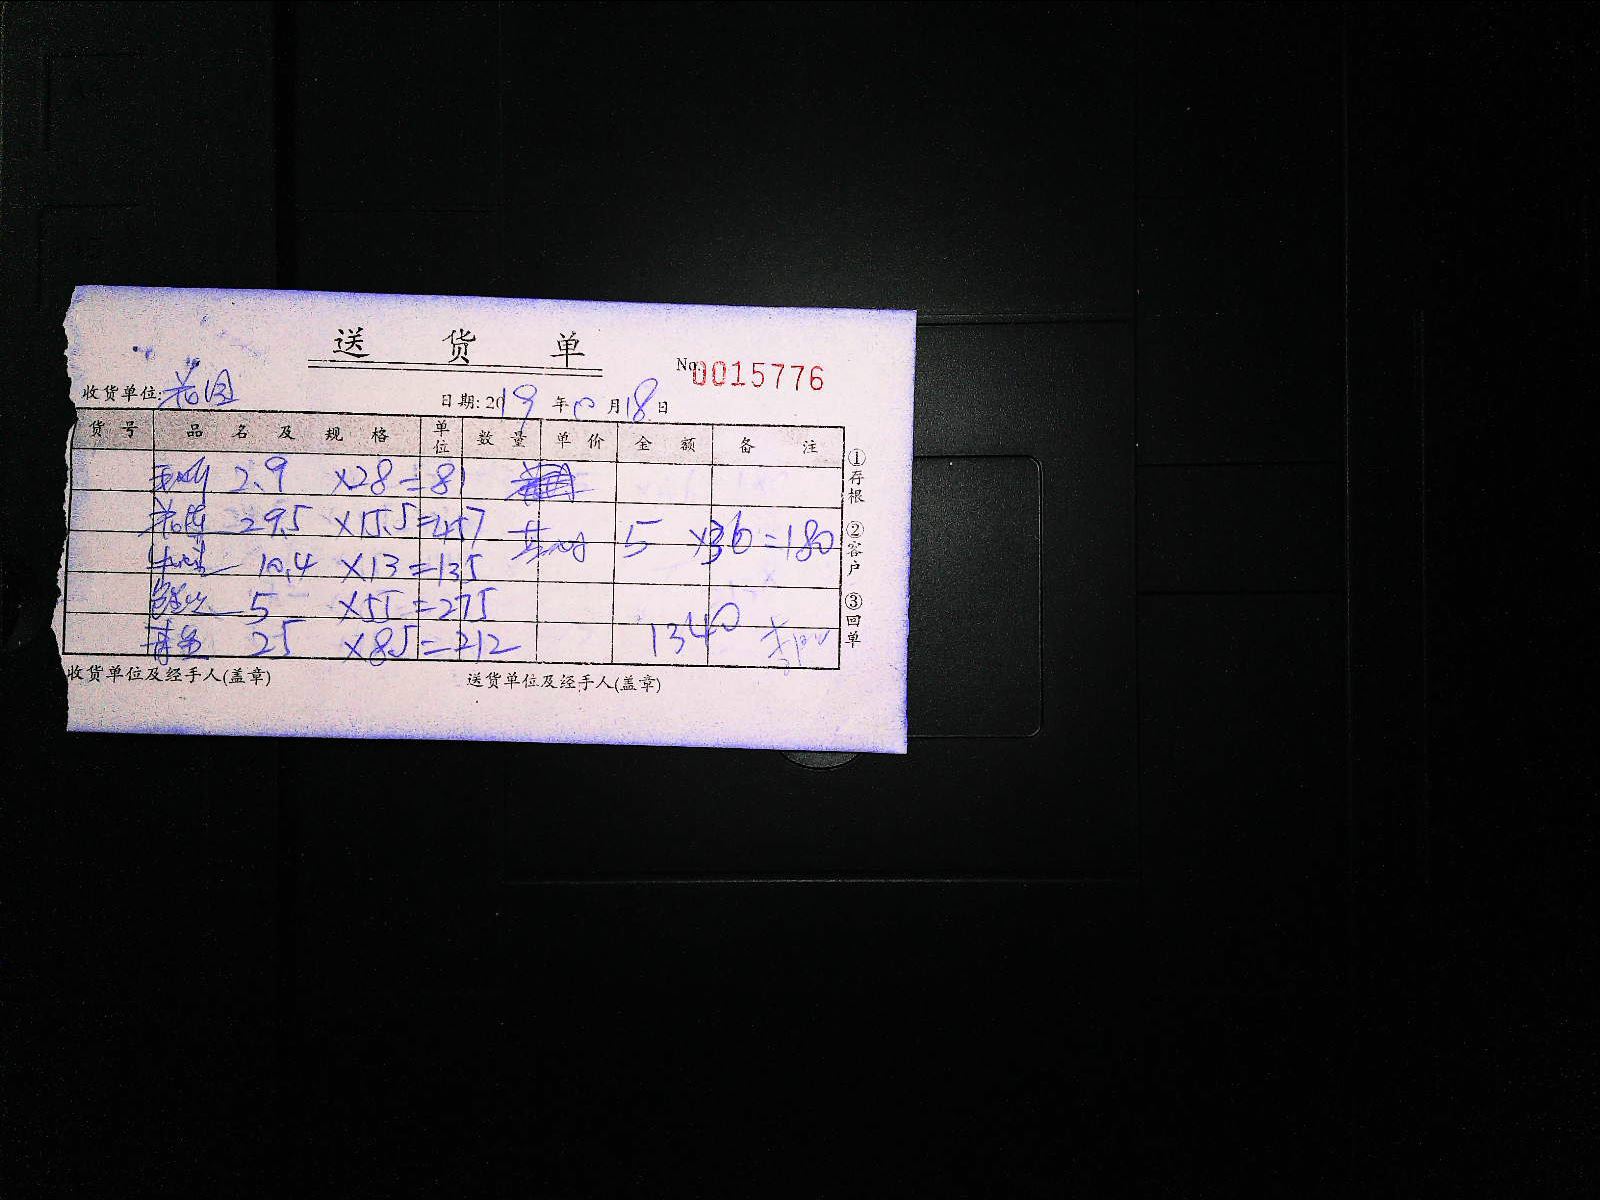 送货单
No. 0015776
收货单位:
日期: 2019年10月18日
货号 品名及规格 单位 数量 单价 金额 备注
2.9 ×28=81
29.5 ×15.5=457
5 ×36=180
10.4 ×13=135
5 ×55=275
25 ×8.5=212
1340
①存根 ②客户 ③回单
收货单位及经手人(盖章) 送货单位及经手人(盖章)